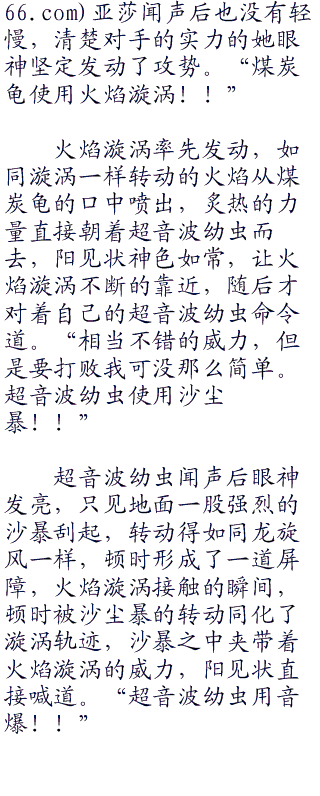 66.com)亚莎闻声后也没有轻
慢，清楚对手的实力的她眼
神坚定发动了攻势。“煤炭
龟使用火焰漩涡！！”
火焰漩涡率先发动，如
同漩涡一样转动的火焰从煤
炭龟的口中喷出，炙热的力
量直接朝着超音波幼虫而
去，阳见状神色如常，让火
焰漩涡不断的靠近，随后才
对着自己的超音波幼虫命令
道。“相当不错的威力，但
是要打败我可没那么简单。
超音波幼虫使用沙尘
暴！！”
超音波幼虫闻声后眼神
发亮，只见地面一股强烈的
沙暴刮起，转动得如同龙旋
风一样，顿时形成了一道屏
障，火焰漩涡接触的瞬间，
顿时被沙尘暴的转动同化了
漩涡轨迹，沙暴之中夹带着
火焰漩涡的威力，阳见状直
接喊道。“超音波幼虫用音
爆！！”